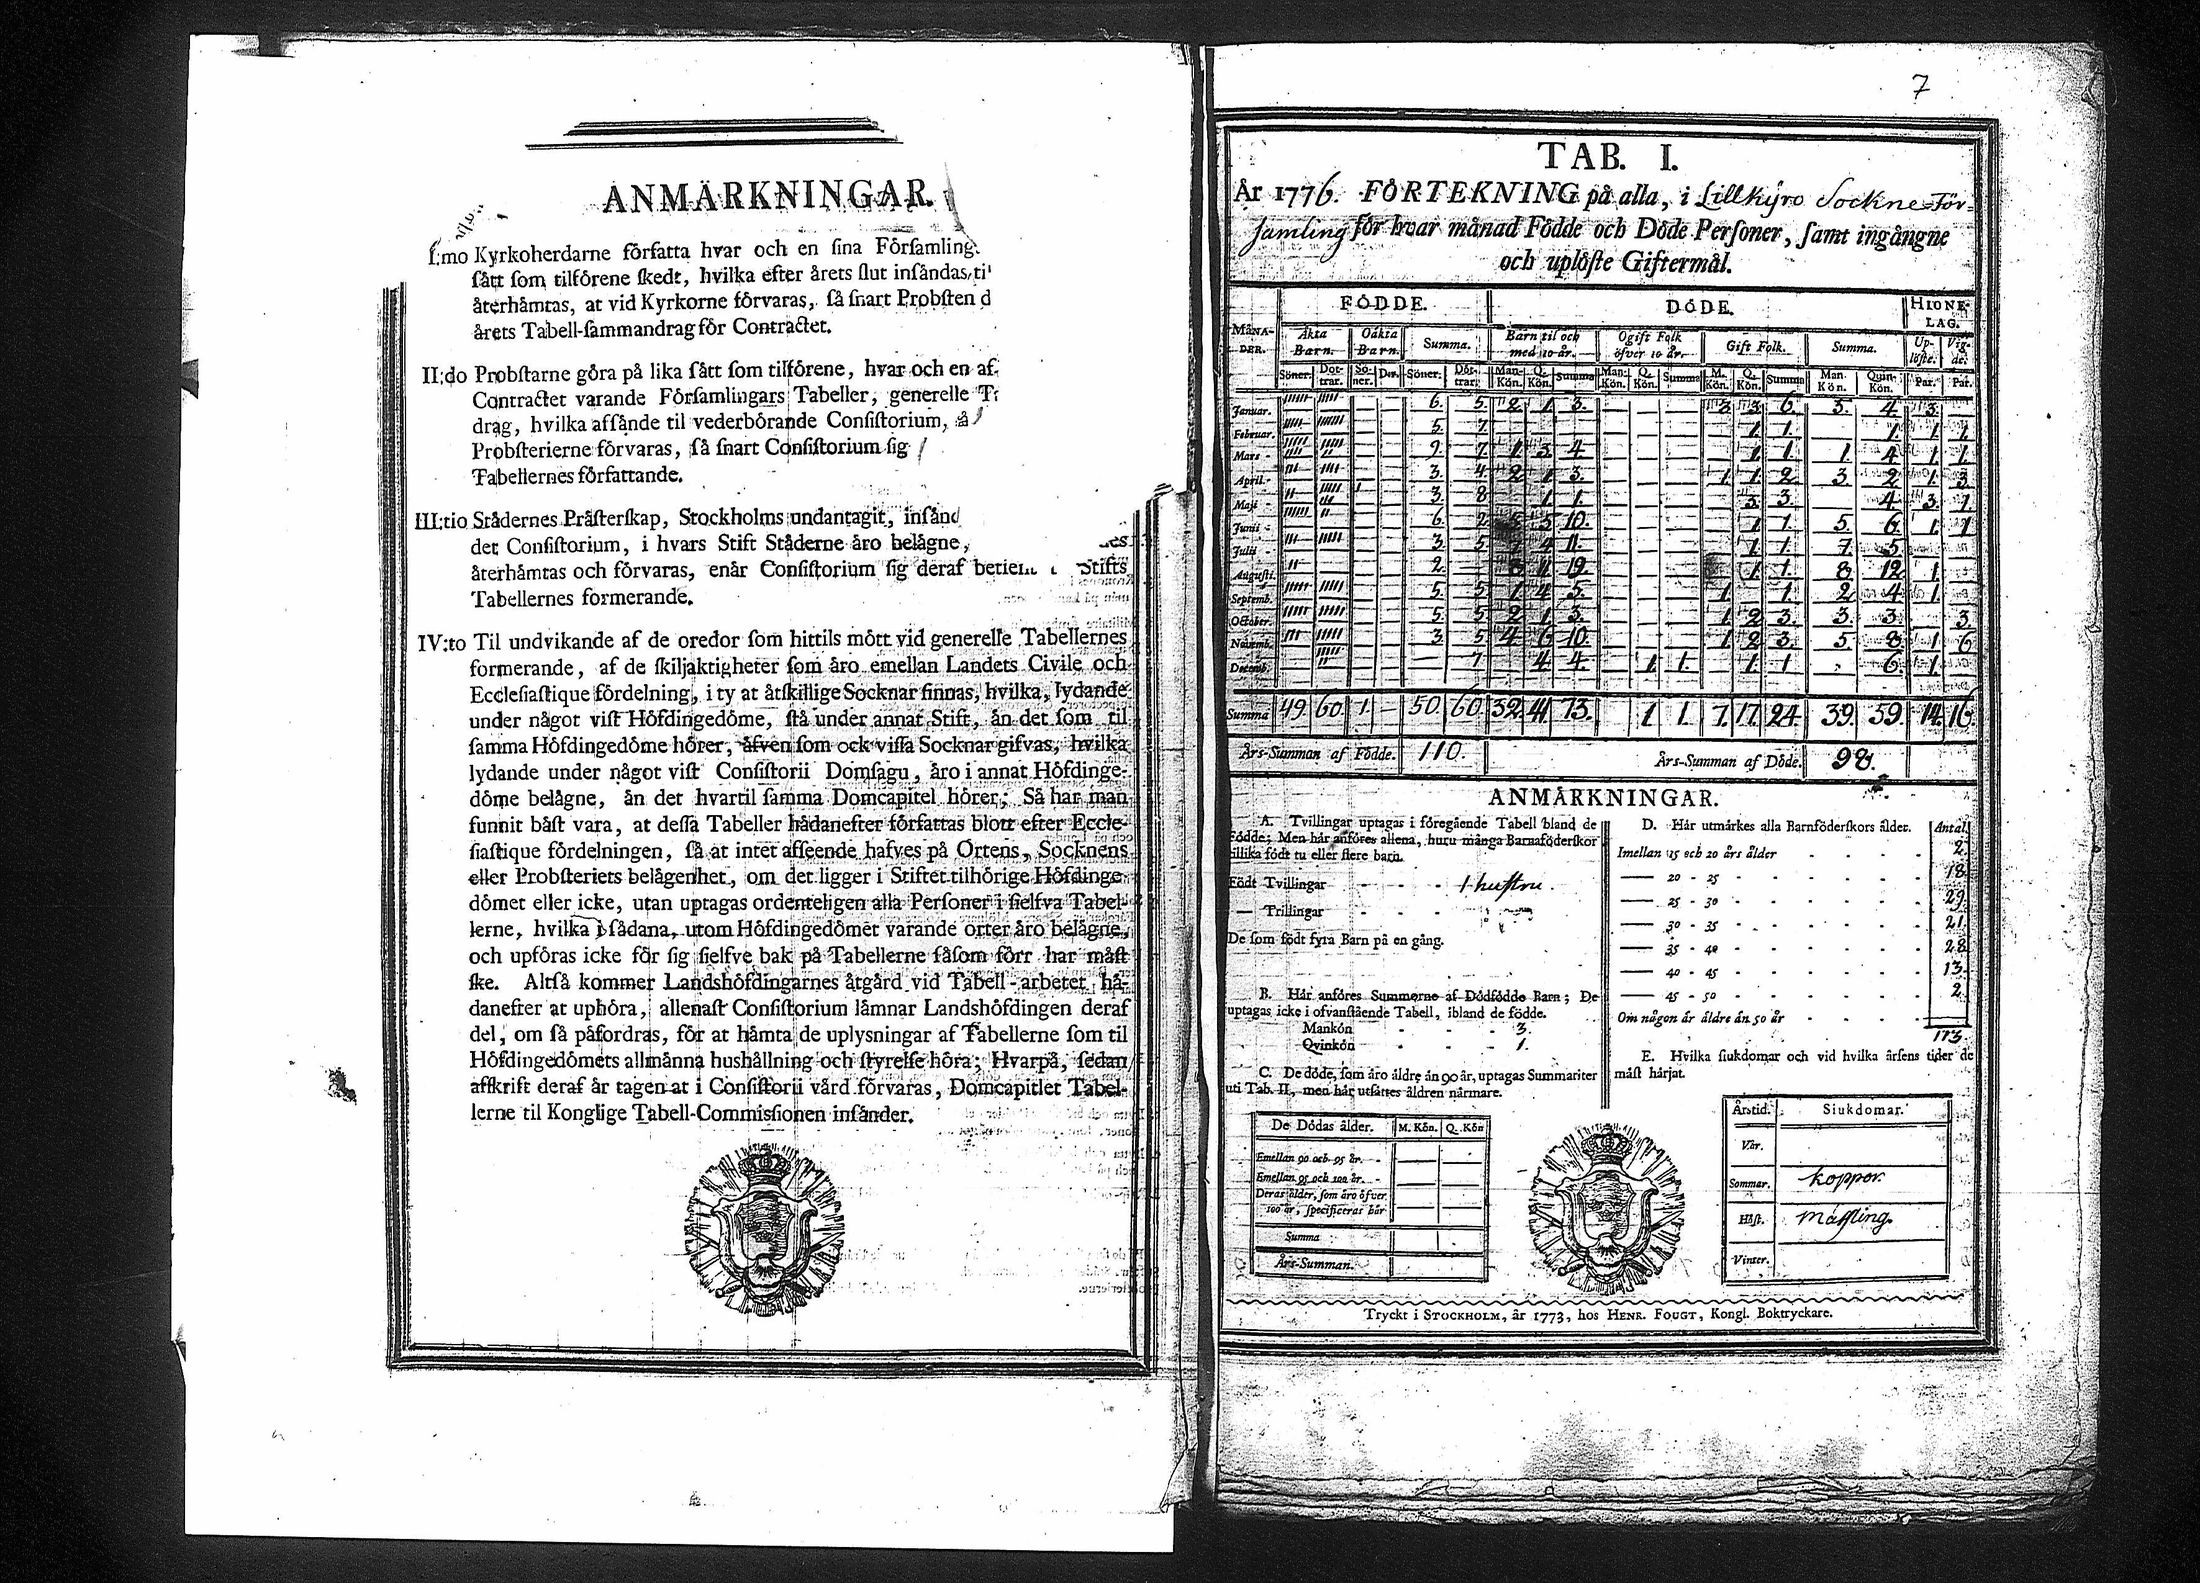 ANMÄRKNINGAR.
I:mo Kyrkoherdarne författa hvar och en sina Församling.
sått som tilförene skedt, hvilka efter årets slut insåndas, ti
återhämtas, at vid Kyrkorne förvaras, så snart Probsten d
årets Tabell-sammandrag för Contractet.
II:do Probstarne göra på lika sått som tilförene, hvar och en af
Contractet varande Församlingars Tabeller, generelle
drag, hvilka affände til vederbörande Consistorium,
Probsterierne förvaras, så snart Consistorium sig
Tabellernes författande.
III:tio Stådernes Prästerskap, Stockholms undantagit, insånd
det Consistorium, i hvars Stift Ståderne äro belågne,
återhåmtas och förvaras, enår Consistorium sig deraf Stifts
Tabellernes formerande.
IV:to Til undvikande af de oredor som hittils mött vid generelle Tabellernes
formerande, af de skiljaktigheter som äro emellan Landets Civile och
Ecclesiastique fördelning, i ty at åtskillige Socknar finnas, hvilka, lydande
under något vist Höfdingedöme, stå under annat Stift, ån det som til
samma Höfdingedöme hörer, åfven som ock vissa Socknar gifvas, hvilka
lydande under något vist Consistorii Domsagu, äro i annat Höfdinge-
döme belägne, ån det hvartil samma Domcapitel hörer; Så har man
funnit båst vara, at dessa Tabeller hådanefter författas blott efter Eccle-
siastique fördelningen, så at intet afseende hafves på Ortens, Socknens
eller Probsteriets belågenhet, om det ligger i Stiftet tilhörige Höfdinge-
dömet eller icke, utan uptagas ordenteligen alla Personer i sielfva Tabel-
lerne, hvilka i sådana, utom Höfdingedömet varande orter äro belågne,
och upföras icke för sig sielfve bak på Tabellerne såsom förr har måst
ske. Altså kommer Landshöfdingarnes åtgård vid Tabell-arbetet hå-
danefter at uphöra, allenast Consistorium lämnar Landshöfdingen deraf
del, om så påfordras, för at håmta de uplysningar af Tabellerne som til
Höfdingedömets allmänna hushållning och styrelse höra; Hvarpå, sedan
afskrift deraf år tagen at i Consistorii vård förvaras, Domcapitlet Tabel-
lerne til Konglige Tabell-Commissionen insånder.
7
TAB. I.
År 1776. FÖRTEKNING på alla, i Lillkyro Sockne-För-
samling för hvar månad Födde och Döde Personer, samt ingångne
och uplöste Giftermål.
FÖDDE. DÖDE. HIONE-
LAG.
MÅNA-
DER. Äkta
Barn. Oäkta
Barn. Summa. Barn til och
med 10 år. Ogift Folk
öfver 10 år. Gift Folk. Summa. Up-
löste. Vig-
de.
Söner. Dot-
trar. Sö-
ner. Dr. Söner. Döt-
trar. Man-
Kön. Q.
Kön. Summa Man-
Kön. Q.
Kön. Summa M.
Kön. Q.
Kön. Summa Man
Kön. Quin-
Kön. Par. Par.
Januar. 6. 5. 2 1 3. 3 3 6. 5. 4. 3.
Februar. 5 7 1 1. 1. 1. 1.
Mars 9. 7. 1 3 4 1. 1. 1. 4. 1 1.
April. 3. 4. 2 1 3. 1 1. 2. 3. 2. 1. 3.
Maji 3. 8 1 1. 3 3. 4. 3. 1
Junii 6. 2 5 5 10. 1 1. 5. 6. 1. 1
Julii 3. 5 7 4 11. 1. 1. 7. 5
Augusti. 2. 8 11 19. 1. 1 8. 12. 1.
Septemb. 5. 5 1 4 5. 1. 1. 2 4 1.
October. 5 5 2 1 3. 1. 2 3. 3. 3. 3.
Novemb. 3. 5 4 6 10. 1. 2 3. 5. 8. 1 6
Decemb. 7 4 4. 1. 1. 1. 1 6. 1.
Summa 49. 60. 1. — 50. 60. 32. 41. 73. 1 1. 7. 17. 24. 39. 59. 14. 16.
Års-Summan af Födde. 110. Års-Summan af Döde. 98.
ANMÄRKNINGAR.
A. Tvillingar uptagas i föregående Tabell bland de
Födde; Men hår anföres allena, huru många Barnaföderskor
tillika födt tu eller flere barn.
Födt Tvillingar - - - 1 hustru.
— Trillingar - - -
De som födt fyra Barn på en gång.
B. Hår anföres Summorne af Dödfödde Barn; De
uptagas icke i ofvanstående Tabell, ibland de födde.
Mankön - - 3.
Qvinkön - - 1.
C. De döde, som äro äldre än 90 år, uptagas Summariter
uti Tab. II, men hår utsåttes åldren närmare.
De Dödas ålder. M. Kön. Q. Kön
Emellan 90 och 95 år. -
Emellan 95 och 100 år. -
Deras ålder, som åro öfver
100 år, specificeras hår
Summa
Års-Summan.
D. Hår utmårkes alla Barnföderskors ålder. Antal.
Imellan 15 och 20 års ålder 2.
— 20 - 25 18.
— 25 - 30 29.
— 30 - 35 21.
— 35 - 40 28.
— 40 - 45 13.
— 45 - 50 2
Om någon år åldre ån 50 år
113.
E. Hvilka siukdomar och vid hvilka årsens tider de
måst hårjat.
Årstid. Siukdomar.
Vår.
Sommar. koppor.
Höst. Mässling.
Vinter.
Tryckt i STOCKHOLM, år 1773, hos HENR. FOUGT, Kongl. Boktryckare.